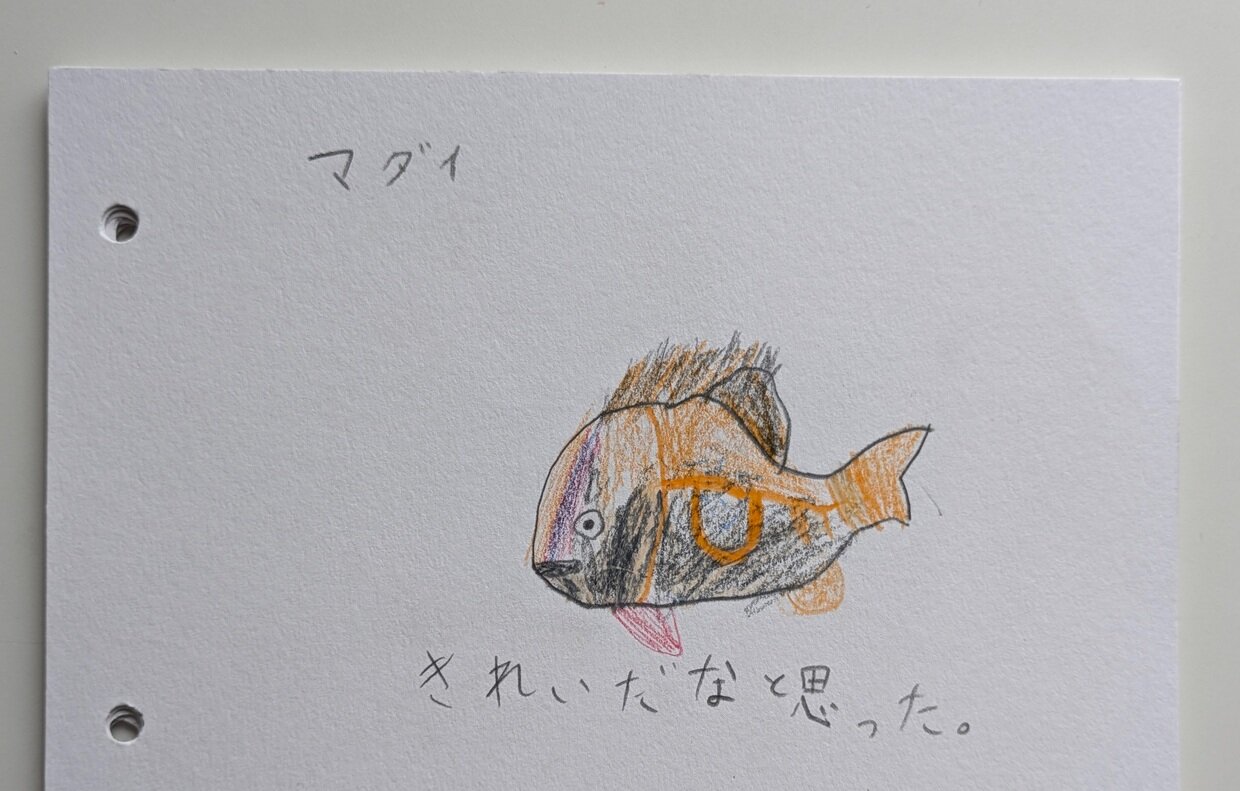 マダイ
きれいだなと思った。